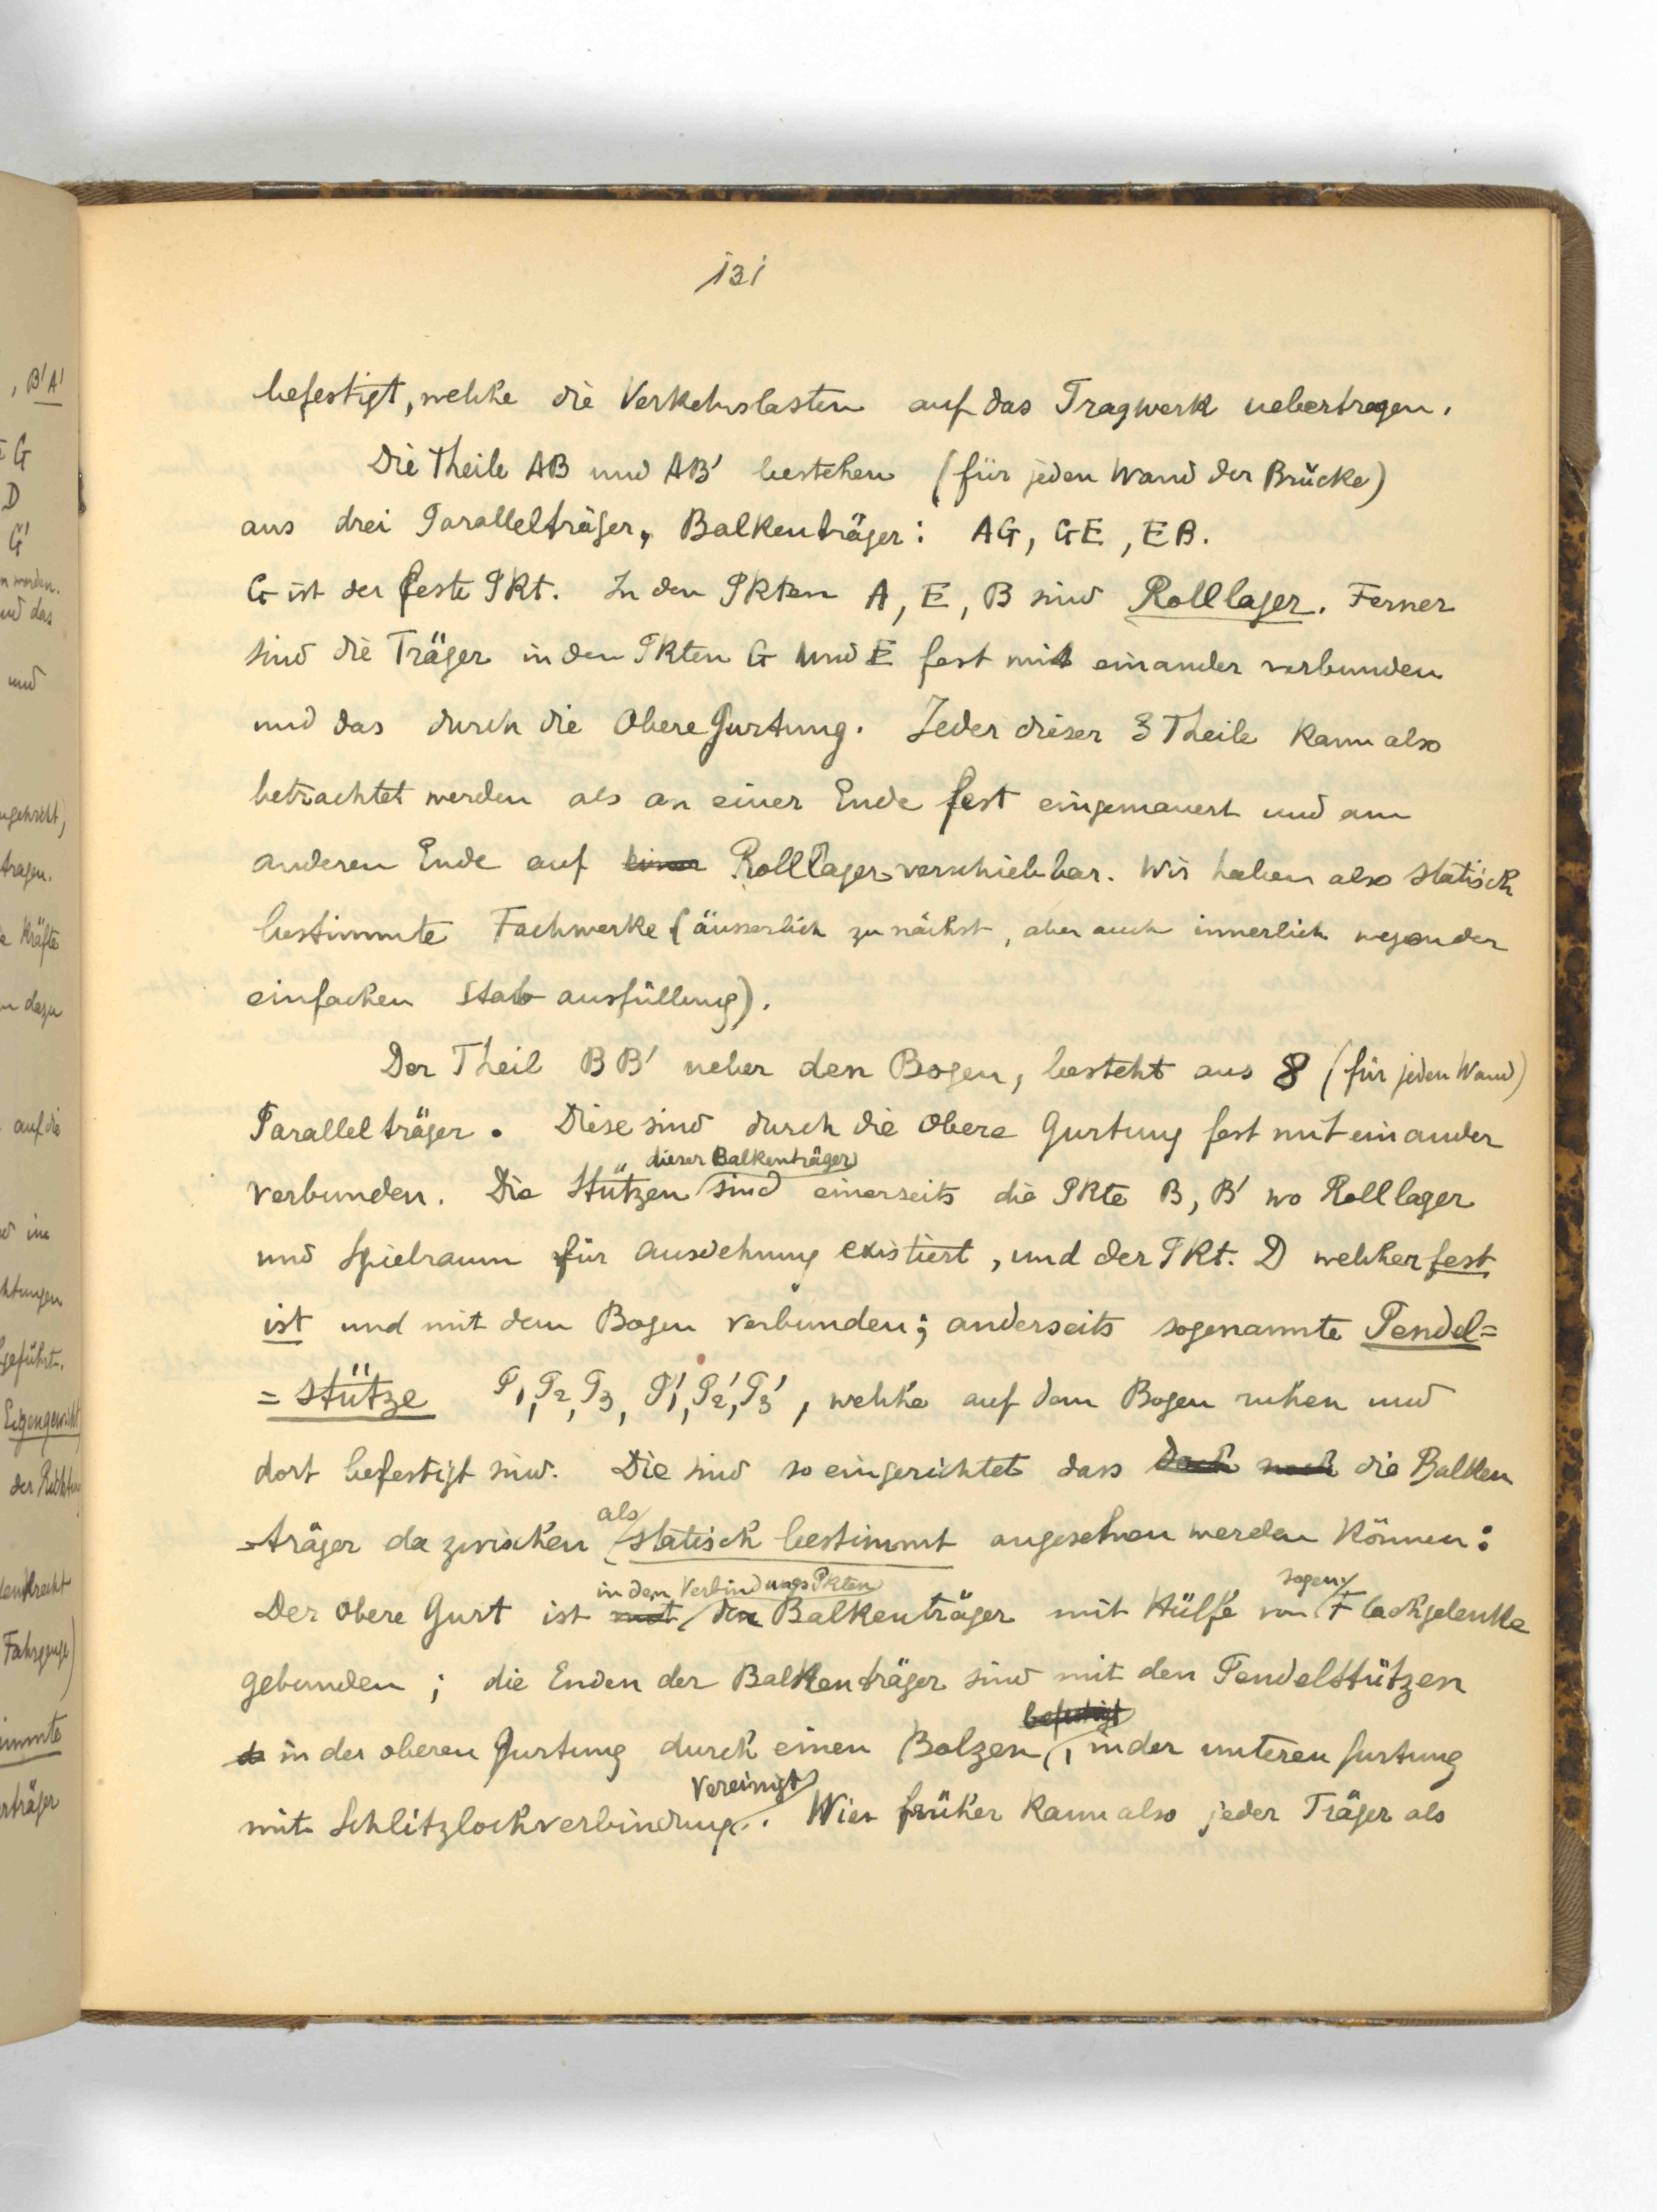 131
befestigt, welche die Verkehrslasten auf das Tragwerk uebertragen.
Die Theile AB und AB' bestehen (für jeden Wand der Brücke)
aus drei Parallelträger, Balkenträger: AG, GE, EB.
G ist der feste Pkt. In den Pkten A, E, B sind Rolllager. Ferner
sind die Träger in den Pkten G und E fest mit einander verbunden
und das durch die Obere Gurtung. Jeder dieser 3 Theile kann also
betrachtet werden als an einer Ende fest eingemauert und am
anderen Ende auf einer Rolllager verschiebbar. Wir haben also statisch
bestimmte Fachwerke (äusserlich zunächst, aber auch innerlich wegen der
einfachen Stab ausfüllung).
Der Theil BB' ueber den Bogen, besteht aus 8 (für jeden Wand)
Parallelträger. Diese sind durch die Obere Gurtung fest mit einander
dieser Balkenträger
verbunden. Die Stützen sind einerseits die Pkte B, B' wo Rolllager
und Spielraum für Ausdehnung existiert, und der Pkt. D welcher fest
ist und mit dem Bogen verbunden; anderseits sogenannte Pendel=
=stütze P1, P2, P3, P1', P2', P3', welche auf dem Bogen ruhen und
dort befestigt sind. Die sind so eingerichtet dass die Balken
als
=träger dazwischen statisch bestimmt angesehen werden können:
in den VerbindungsPkten sogen.
Der Obere Gurt ist mit den Balkenträger mit Hülfe von Flachgelenke
gebunden; die Enden der Balkenträger sind mit den Pendelstützen
befestigt
in der oberen Gurtung durch einen Bolzen, in der unteren Gurtung
vereinigt
mit Schlitzlochverbindung. Wie früher kann also jeder Träger als
, B'A'
G
D
G'
worden.
und das
und
tragen.
Kräfte
dazu
auf die
im
geführt.
Eigengewicht
der Richtung
Fahrzeuge)